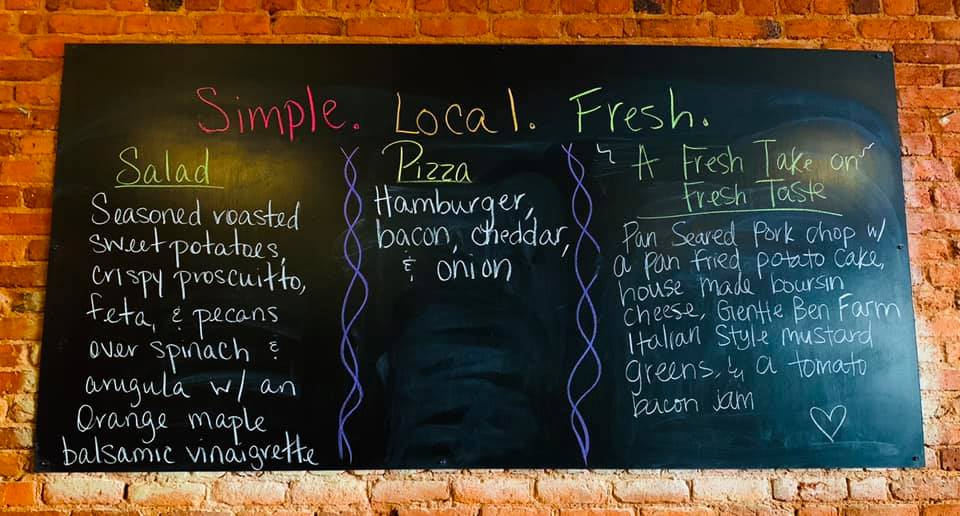 Simple. Local. Fresh.
Salad
Seasoned roasted
sweet potatoes,
crispy proscuitto,
feta, & pecans
over spinach &
arugula w/ an
Orange maple
balsamic vinaigrette
Pizza
Hamburger,
bacon, cheddar,
& onion
A Fresh Take on
Fresh Taste
Pan Seared Pork chop w/
a pan fried potato cake,
house made boursin
cheese, Gentle Ben Farm
Italian Style mustard
greens, & a tomato
bacon jam